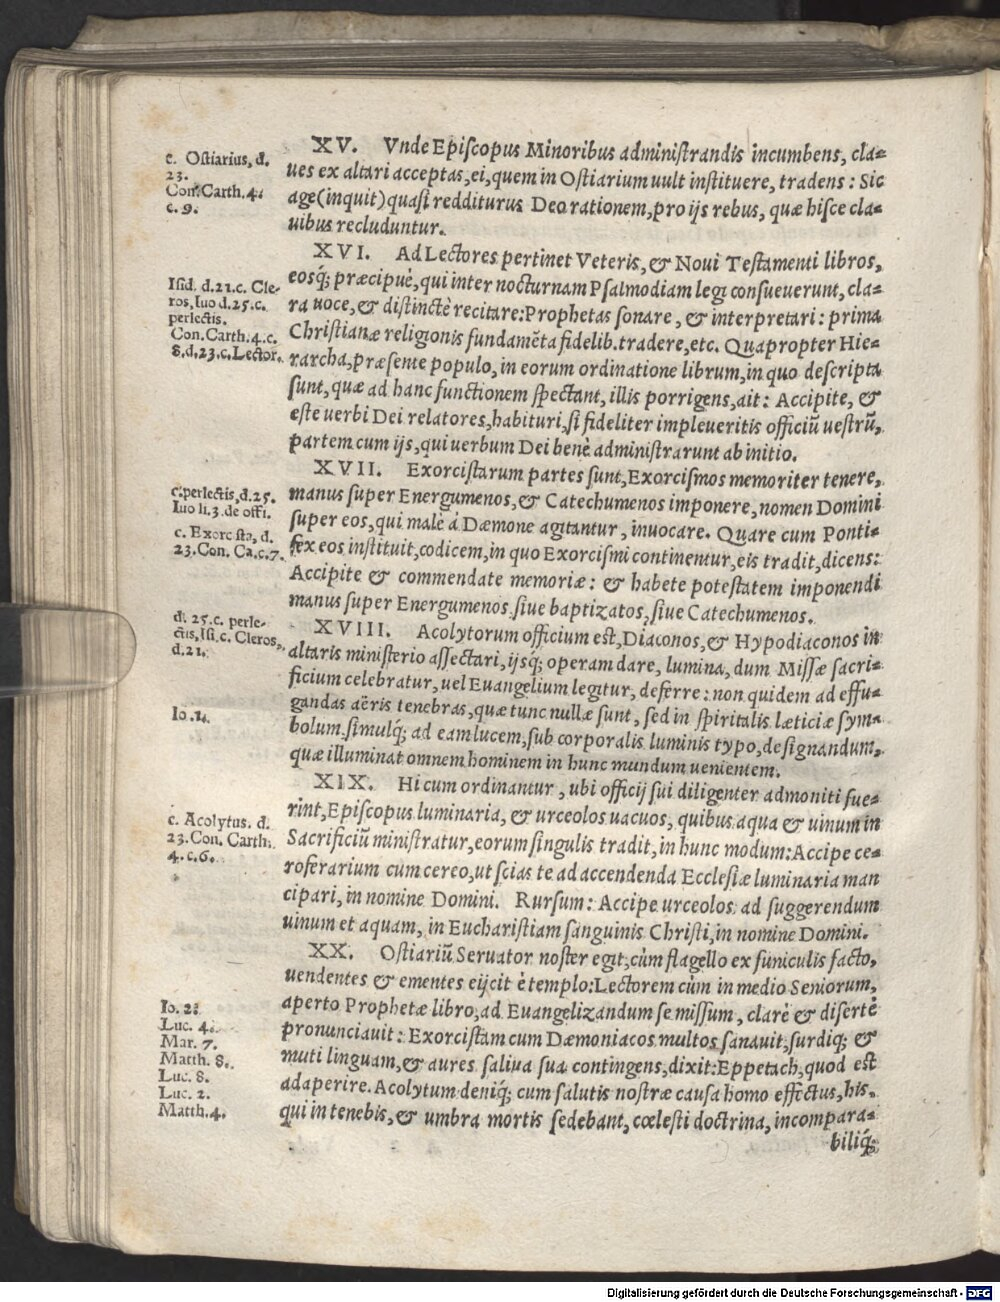 XV. Vnde Epiſcopus Minoribus adminiſtrandis incumbens, cla=
ues ex altari acceptas, ei, quem in Oſtiarium uult inſtituere, tradens: Sic
age (inquit) quaſi redditurus Deo rationem, pro ijs rebus, quæ hiſce cla=
uibus recluduntur.
c. Oſtiarius, d.
23.
Con. Carth. 4.
c. 9.
XVI. Ad Lectores pertinet Veteris, & Noui Teſtamenti libros,
eosq́; præcipuè, qui inter nocturnam Pſalmodiam legi conſueuerunt, cla=
ra uoce, & diſtinctè recitare: Prophetas ſonare, & interpretari: prima
Chriſtianæ religionis fundamēta fidelib. tradere, etc. Quapropter Hie=
rarcha, præſente populo, in eorum ordinatione librum, in quo deſcripta
ſunt, quæ ad hanc functionem ſpectant, illis porrigens, ait: Accipite, &
eſte uerbi Dei relatores, habituri, ſi fideliter impleueritis officiū ueſtrū,
partem cum ijs, qui uerbum Dei benè adminiſtrarunt ab initio.
Iſid. d. 21. c. Cle-
ros, Iuo d. 25. c.
perlectis.
Con. Carth. 4. c.
8. d. 23. c. Lector.
XVII. Exorciſtarum partes ſunt, Exorciſmos memoriter tenere,
manus ſuper Energumenos, & Catechumenos imponere, nomen Domini
ſuper eos, qui malè á Dæmone agitantur, inuocare. Quare cum Ponti=
fex eos inſtituit, codicem, in quo Exorciſmi continentur, eis tradit, dicens:
Accipite & commendate memoriæ: & habete poteſtatem imponendi
manus ſuper Energumenos ſiue baptizatos, ſiue Catechumenos.
c. perlectis, d. 25.
Iuo li. 3. de offi.
c. Exorciſta, d.
23. Con. Ca. c. 7.
XVIII. Acolytorum officium eſt, Diaconos, & Hypodiaconos in
altaris miniſterio aſſectari, ijsq́; operam dare, lumina, dum Miſſæ sacri=
ficium celebratur, uel Euangelium legitur, deferre: non quidem ad effu=
gandas aëris tenebras, quæ tunc nullæ ſunt, ſed in ſpiritalis læticiæ ſym=
bolum, ſimulq́; ad eam lucem, ſub corporalis luminis typo, deſignandum,
quæ illuminat omnem hominem in hunc mundum uenientem.
di. 25. c. perle-
ctis, Iſi. c. Cleros,
d. 21.
Io. 1.
XIX. Hi cum ordinantur, ubi officij ſui diligenter admoniti fue=
rint, Epiſcopus luminaria, & urceolos uacuos, quibus aqua & uinum in
Sacrificiū miniſtratur, eorum ſingulis tradit, in hunc modum: Accipe ce=
roferarium cum cereo, ut ſcias te ad accendenda Eccleſiæ luminaria man
cipari, in nomine Domini. Rurſum: Accipe urceolos ad ſuggerendum
uinum et aquam, in Euchariſtiam ſanguinis Chriſti, in nomine Domini.
c. Acolytus. d.
23. Con. Carth.
4. c. 6.
XX. Oſtiariū Seruator noſter egit, cùm flagello ex funiculis facto,
uendentes & ementes eijcit è templo: Lectorem cùm in medio Seniorum,
aperto Prophetæ libro, ad Euangelizandum ſe miſſum, clarè & diſertè
pronunciauit: Exorciſtam cum Dæmoniacos multos ſanauit, ſurdiq́; &
muti linguam, & aures ſaliua ſua contingens, dixit: Eppetach, quod eſt
adaperire. Acolytum deniq́; cum ſalutis noſtræ cauſa homo effectus, his,
qui in tenebis, & umbra mortis ſedebant, cœleſti doctrina, incompara=
biliq́;
Io. 2.
Luc. 4.
Mar. 7.
Matth. 8.
Luc. 8.
Luc. 2.
Matth. 4.
Digitalisierung gefördert durch die Deutsche Forschungsgemeinschaft - DFG